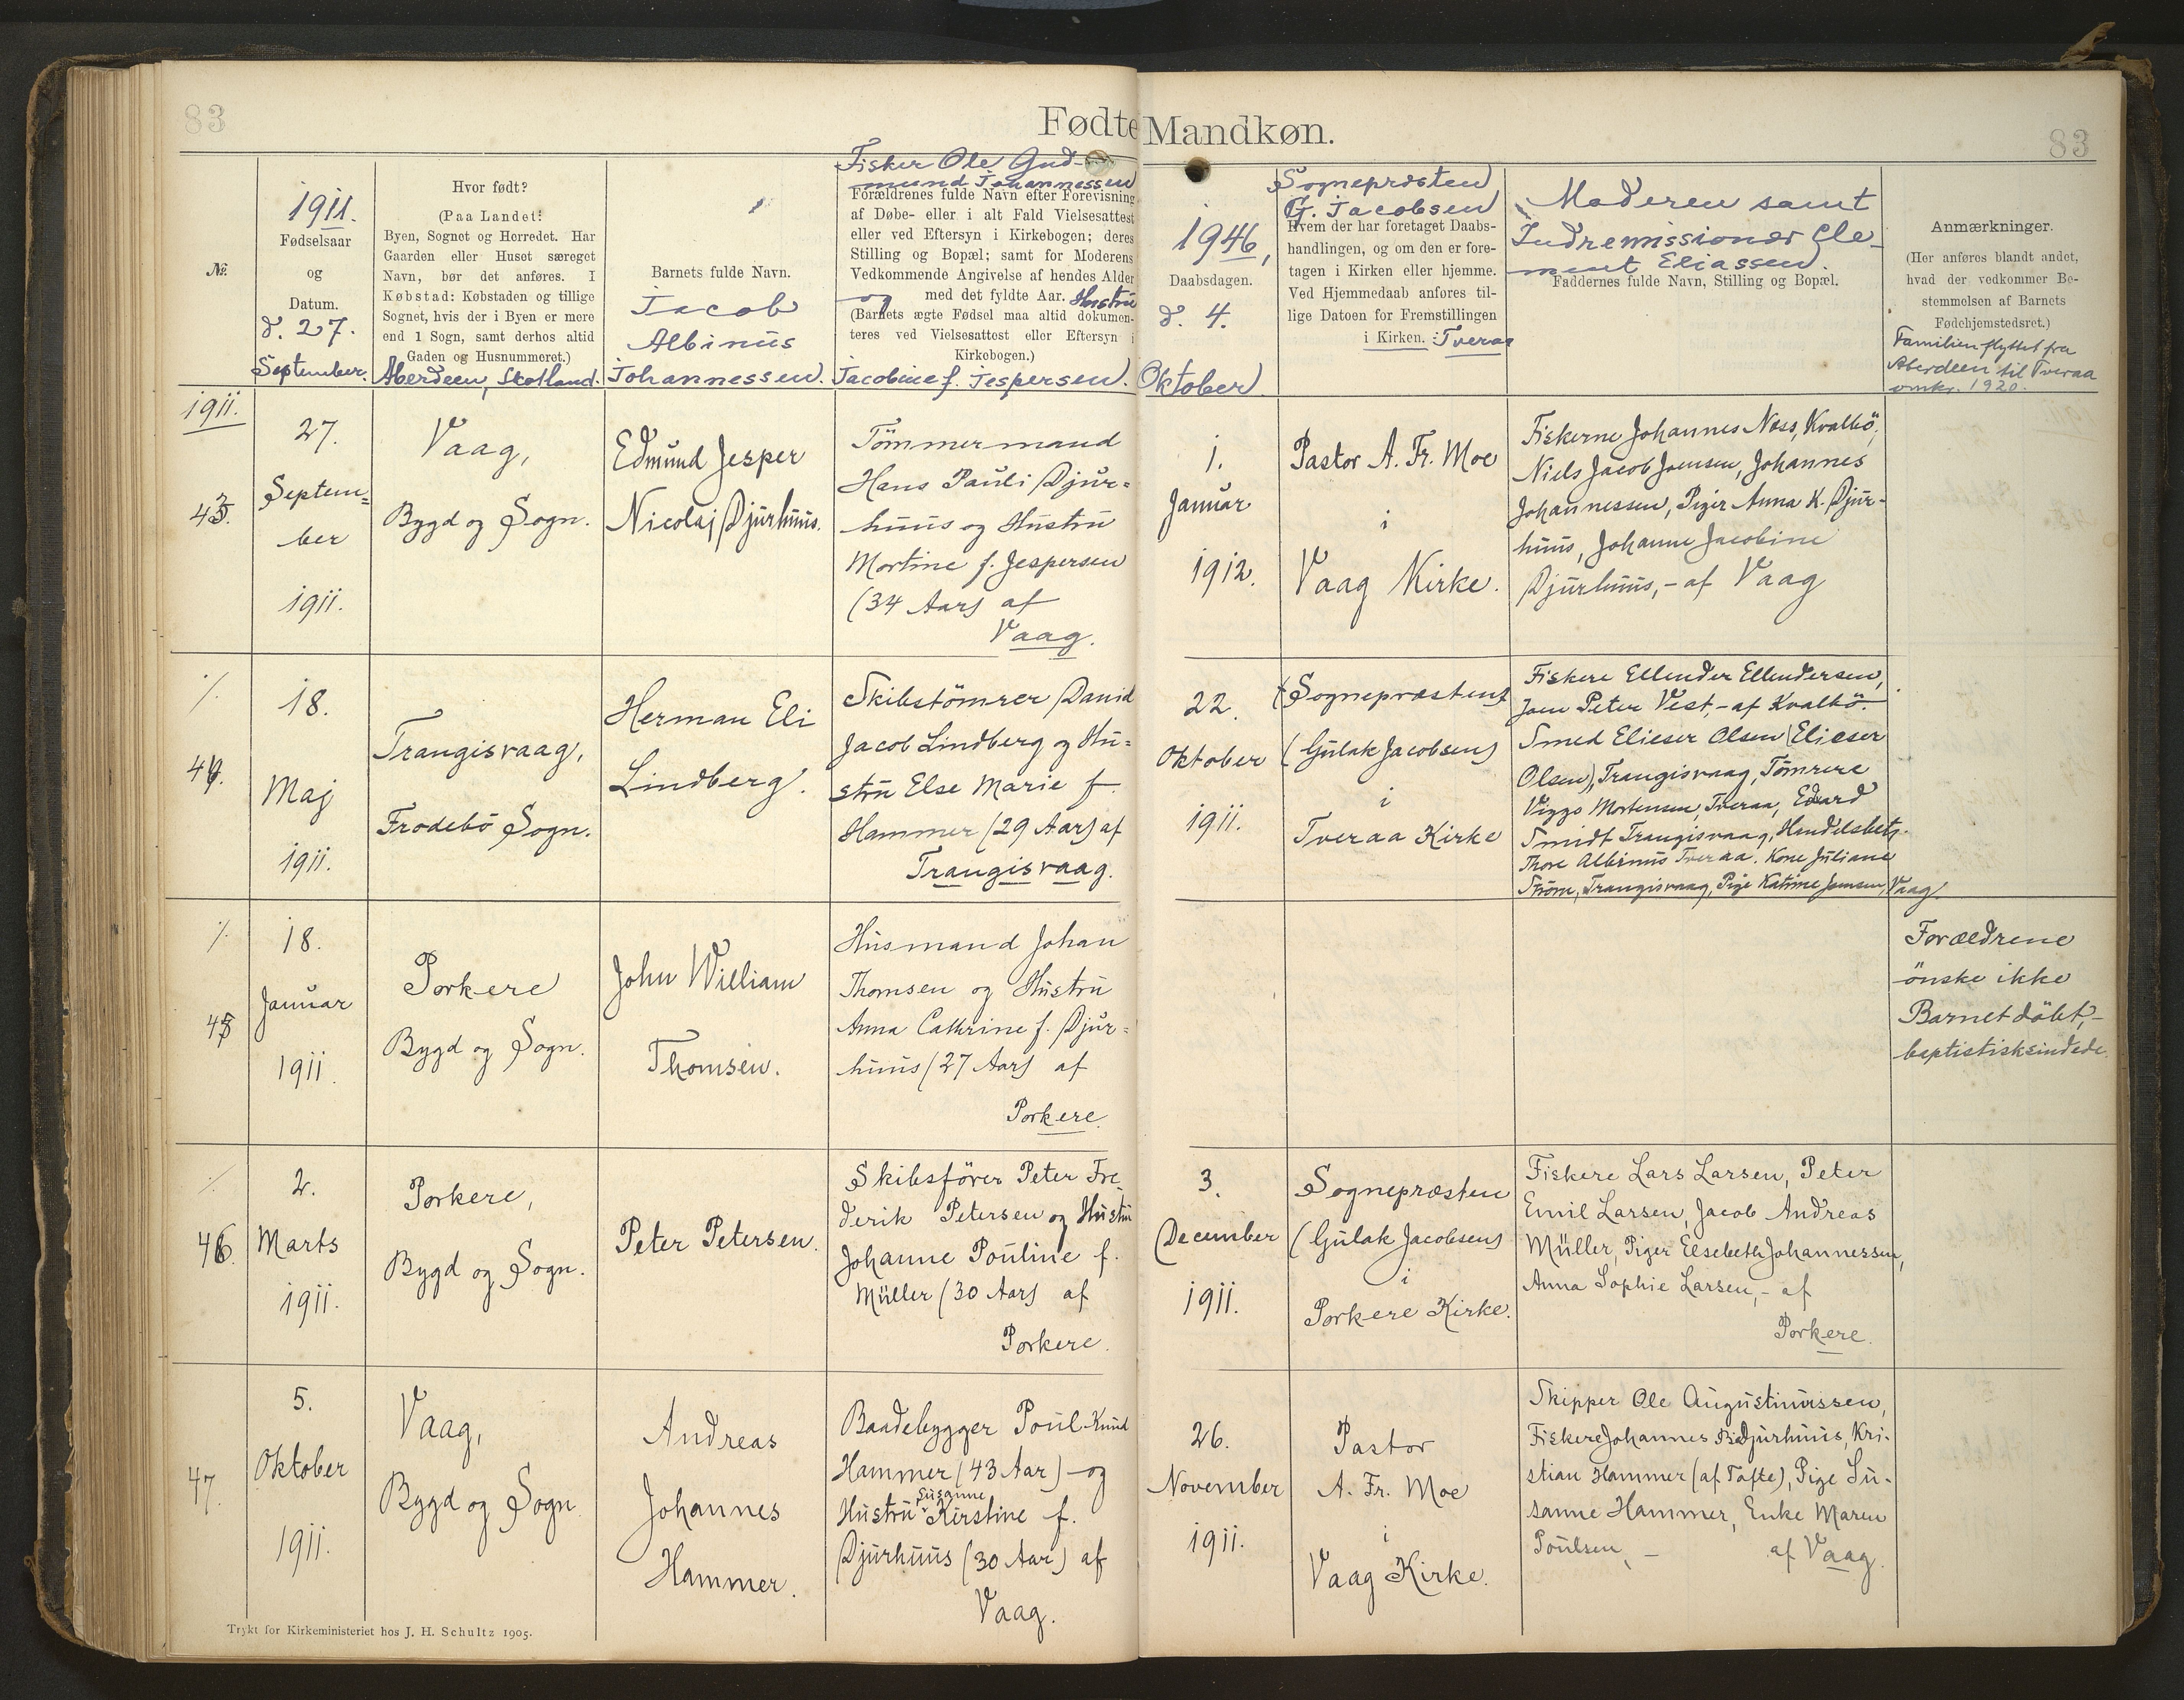 83
Fødte Mandkøn.
83
1911.
Fødselsaar
og
Datum.
d. 27.
September.
No.
Hvor født?
(Paa Landet:
Byen, Sognet og Herredet. Har
Gaarden eller Huset særeget
Navn, bør det anføres. I
Købstad: Købstaden og tillige
Sognet, hvis der i Byen er mere
end 1 Sogn, samt derhos altid
Gaden og Husnummeret.)
Aberdeen, Skotland.
Barnets fulde Navn.
Jacob
Albinus
Johannessen.
Fisker Ole Gud-
mund Johannessen
Forældrenes fulde Navn efter Forevisning
af Døbe- eller i alt Fald Vielsesattest
eller ved Eftersyn i Kirkebogen; deres
Stilling og Bopæl; samt for Moderens
Vedkommende Angivelse af hendes Alder
med det fyldte Aar.
og Hustru
(Barnets ægte Fødsel maa altid dokumen-
teres ved Vielsesattest eller Eftersyn i
Kirkebogen.)
Jacobine f. Jespersen.
1946,
Daabsdagen.
d. 4.
Oktober
Sognepræsten
G. Jacobsen
Hvem der har foretaget Daabs-
handlingen, og om den er fore-
tagen i Kirken eller hjemme.
Ved Hjemmedaab anføres til-
lige Datoen for Fremstillingen
i Kirken. : Tveraa
Moderen samt
Indremissionær Cle-
ment Eliassen.
Faddernes fulde Navn, Stilling og Bopæl.
Anmærkninger.
(Her anføres blandt andet,
hvad der vedkommer Be-
stemmelsen af Barnets
Fødehjemstedsret.)
Familien flyttet fra
Aberdeen til Tveraa
omkr. 1920.
1911.
43.
27.
Septem=
ber
1911.
Vaag,
Bygd og Sogn.
Edmund Jesper
Nicolaj Djurhuus.
Tömmermand
Hans Pauli Djur=
huus og Hustru
Mortine f. Jespersen
(34 Aar) af
Vaag.
1.
Januar
1912.
Pastor A. Fr. Moe
i
Vaag Kirke.
Fiskerne Johannes Næss, Kvalbö,
Niels Jacob Joensen, Johannes
Johannessen, Piger Anna K. Djur-
huus, Johanne Jacobine
Djurhuus, - af Vaag
·/.
44.
18.
Maj
1911.
Trangisvaag,
Frodebö Sogn.
Herman Eli
Lindberg.
Skibstömrer David
Jacob Lindberg og Hu=
stru Else Marie f.
Hammer (29 Aar) af
Trangisvaag.
22.
Oktober
1911.
Sognepræsten
(Gulak Jacobsen)
i
Tveraa Kirke
Fiskere Ellender Ellendersen,
Joen Peter Vest, - af Kvalbö.
Smed Elieser Olsen (Elieser
Olsen), Trangisvaag, Tömrere
Viggo Mortensen, Tveraa, Edvard
Smidt Trangisvaag, Handelsbetj.
Thore Albinus Tveraa. Kone Juliane
Ström, Trangisvaag, Pige Katrine Joensen, Vaag.
·/.
45
18.
Januar
1911.
Porkere
Bygd og Sogn.
John William
Thomsen.
Husmand Johan
Thomsen og Hustru
Anna Cathrine f. Djur=
huus (27 Aar) af
Porkere.
Forældrene
önske ikke
Barnet döbt, -
baptistisksindede.
·/.
46.
2.
Marts
1911.
Porkere,
Bygd og Sogn.
Peter Petersen.
Skibsförer Peter Fre-
derik Petersen og Hustru
Johanne Pouline f.
Müller (30 Aar) af
Porkere.
3.
December
1911.
Sognepræsten
(Gulak Jacobsen)
i
Porkere Kirke.
Fiskere Lars Larsen, Peter
Emil Larsen, Jacob Andreas
Müller, Piger Elsebeth Johannessen,
Anna Sophie Larsen, - af
Porkere.
47.
5.
Oktober
1911.
Vaag,
Bygd og Sogn
Andreas
Johannes
Hammer.
Baadebygger Poul Knud
Hammer (43 Aar) - og
Susanne
Hustru Kirstine f.
Djurhuus (30 Aar) af
Vaag.
26.
November
1911.
Pastor
A. Fr. Moe
i
Vaag Kirke.
Skipper Ole Augustinussen,
Fiskere Johannes Djurhuus, Kri-
stian Hammer (af Tofte), Pige Su-
sanne Hammer, Enke Maren
Poulsen, - af Vaag.
Trykt for Kirkeministeriet hos J. H. Schultz 1905.